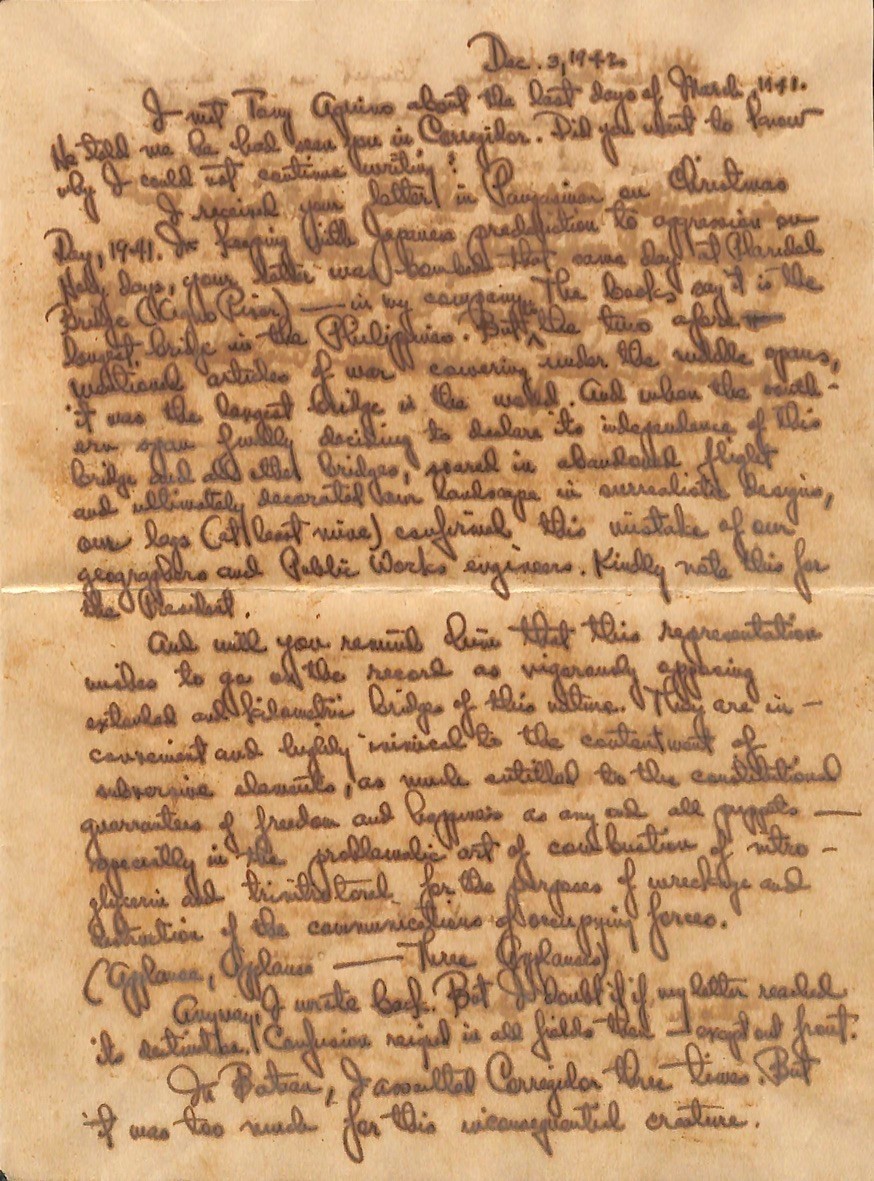 Dec. 3, 1942.
I met Tony Aquino about the last days of March, 1941.
He told me he had seen you in Corregidor. Did you want to know
why I could not continue writing?
I received your letter in Pangasinan on Christmas
Day, 1941. In keeping with Japanese predilection to aggression on
Holy days, your letter was bombed that same day at Plaridel
Bridge (Agno River) — in my company. The books say it is the
longest bridge in the Philippines. But the two afore
mentioned articles of war cowering under the middle spans,
it was the longest bridge in the world. And when the south-
ern span finally deciding to declare its independence of this
bridge and all other bridges, soared in abandoned flight
and ultimately decorated our landscape in surrealistic designs,
our legs (at least mine) confirmed this mistake of our
geographers and Public Works engineers. Kindly note this for
the President.
And will you remind him that this representation
wishes to go on the record as vigorously opposing
extended and kilometric bridges of this nature. They are in-
convenient and highly inimical to the contentment of
subversive elements, as much entitled to the constitutional
guarantees of freedom and happiness as any and all puppets —
specially in the problematic art of combustion of nitro-
glycerin and for the purposes of wreckage and
destruction of the communications of occupying forces.
(Applause, Applause — Three Applauses)
Anyway, I wrote back. But I doubt if if my letter reached
its destination. Confusion reigned in all fields then — except out front.
In Bataan, I assaulted Corregidor three times. But
it was too much for this inconsequential creature.